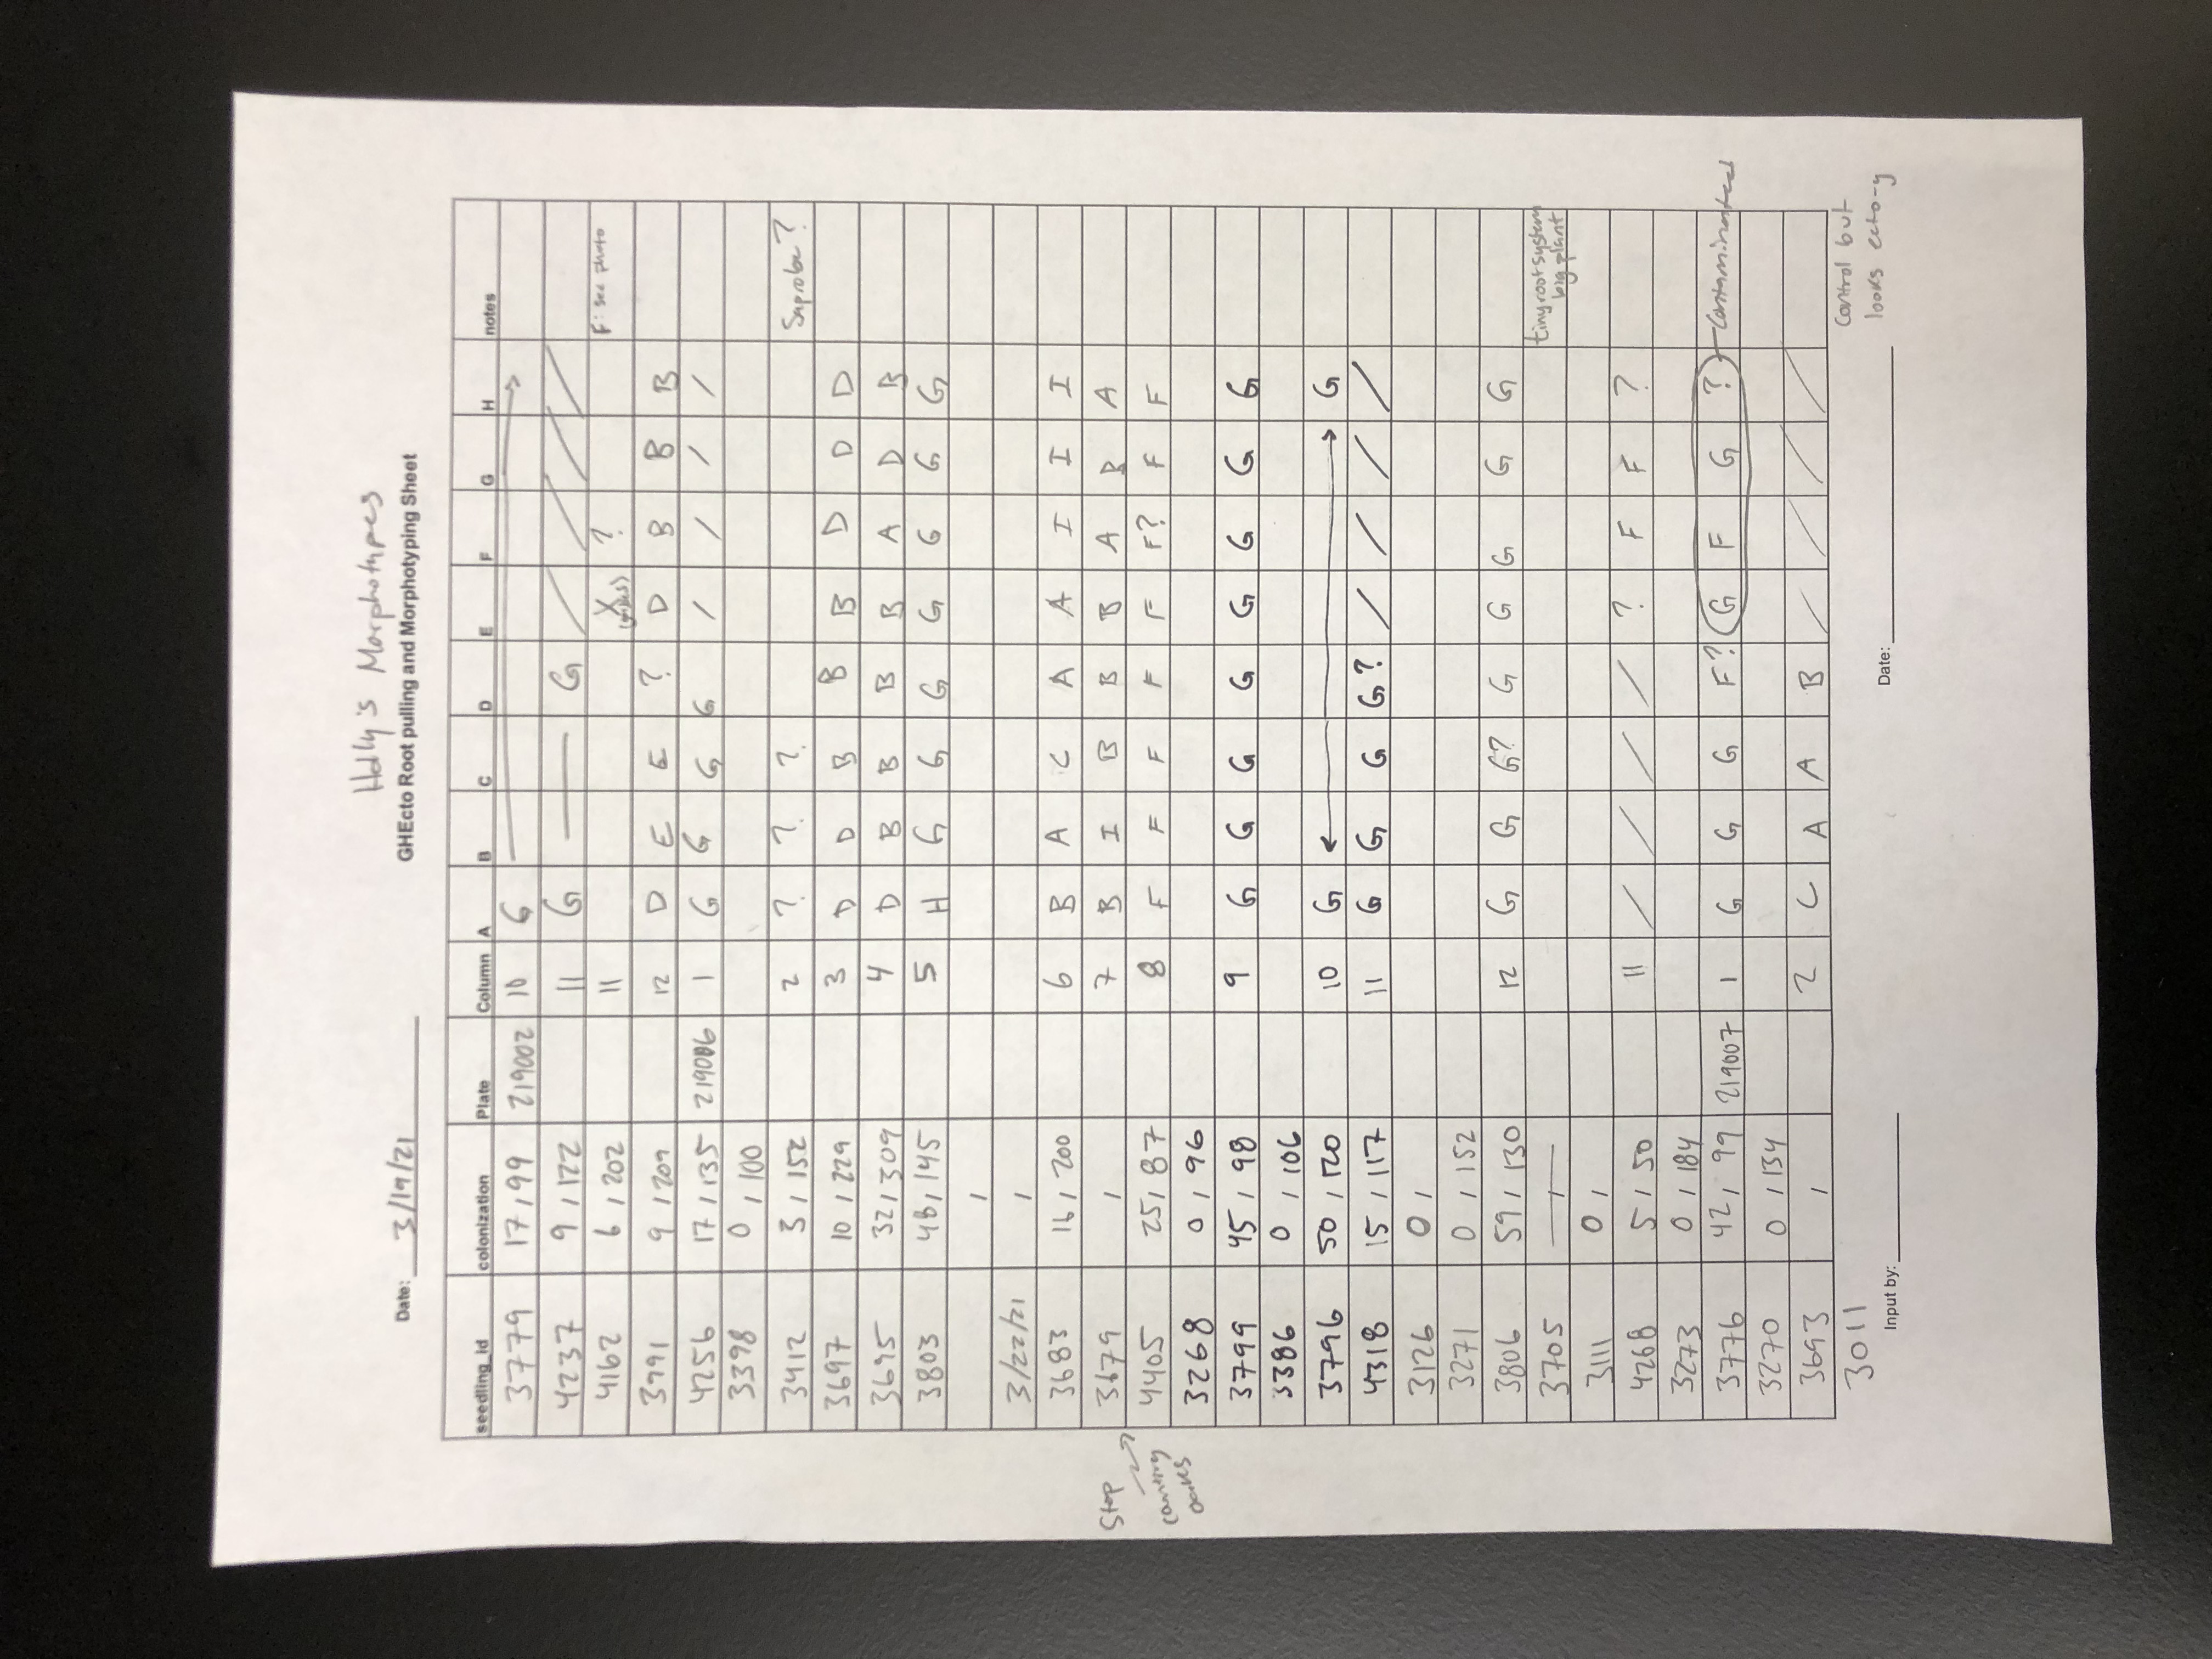 Holly's Morphotypes
Date: 3/19/21 GHEcto Root pulling and Morphotyping Sheet
seedling_id colonization Plate Column A B C D E F G H notes
3779 17 , 99 219002 10 G
4237 9 , 122 11 G — — G / / / /
4162 6 , 202 11 X ? F: see photo
3991 9 , 209 12 D E E ? D B B B
4256 17 , 135 219006 1 G G G G / / / /
3398 0 , 100
3412 3 , 152 2 ? ? ? Saprobe?
3697 10 , 229 3 D D B B B D D D
3695 32 , 309 4 D B B B B A D B
3803 48 , 145 5 H G G G G G G G
,
3/22/21 ,
3683 16 , 200 6 B A C A A I I I
Stop
3679 , 7 B I B B B A B A
counting
oaks
4405 25 , 87 8 F F F F F F? F F
3268 0 , 96
3799 45 , 98 9 G G G G G G G G
3386 0 , 106
3796 50 , 120 10 G ← → G
4318 15 , 117 11 G G G G? / / / /
3126 0 ,
3271 0 , 152
3806 59 , 130 12 G G G? G G G G G
3705 — , tiny root system
big plant
3111 0 ,
4268 5 , 50 11 / / / / ? F F ?
3273 0 , 184
3776 42 , 99 219007 1 G G G F? G F G ? Contaminated
3270 0 , 134
3693 , 2 C A A B / / / /
3011 Control but
looks ecto-y
Input by: Date: